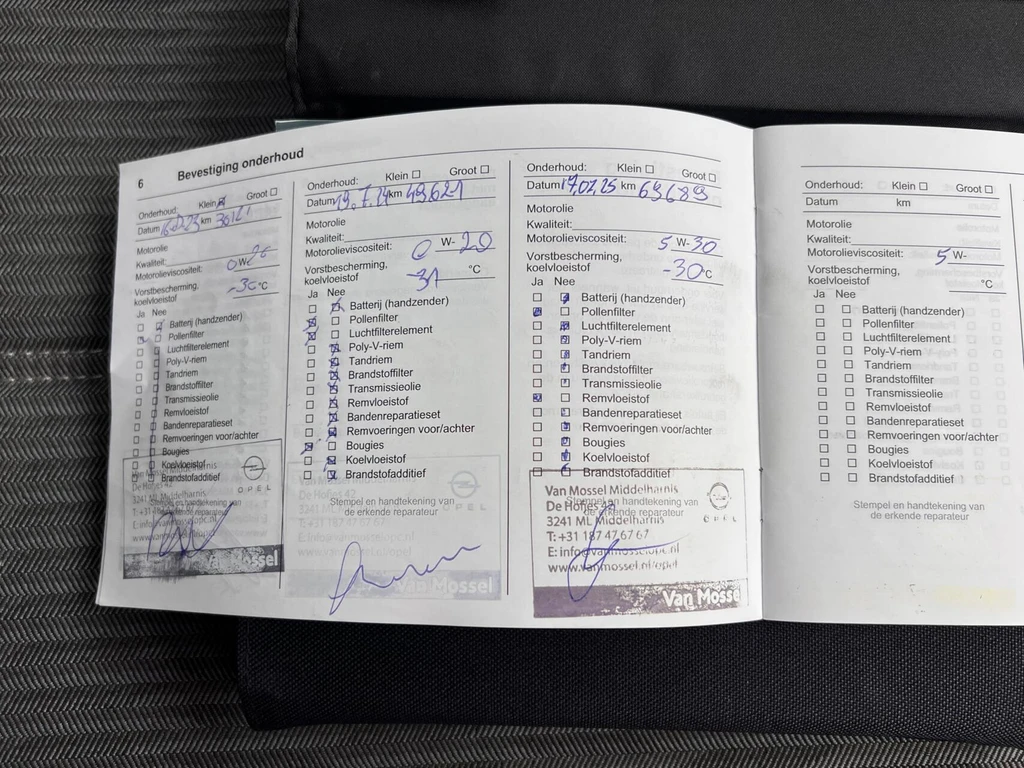 6 Bevestiging onderhoud
Onderhoud: Klein Groot
Datum km
Motorolie
Kwaliteit:
Motorolieviscositeit: 0 W-
Vorstbescherming,
koelvloeistof -30 °C
Ja Nee
Batterij (handzender)
Pollenfilter
Luchtfilterelement
Poly-V-riem
Tandriem
Brandstoffilter
Transmissieolie
Remvloeistof
Bandenreparatieset
Remvoeringen voor/achter
Bougies
Koelvloeistof
Brandstofadditief
Stempel en handtekening van
de erkende reparateur
Van Mossel Middelharnis
De Hofjes 42
3241 ML Middelharnis
OPEL
Van Mossel
Onderhoud: Klein Groot
Datum 19.7.24 km 49621
Motorolie
Kwaliteit:
Motorolieviscositeit: 0 W- 20
Vorstbescherming,
koelvloeistof -31 °C
Ja Nee
Batterij (handzender)
Pollenfilter
Luchtfilterelement
Poly-V-riem
Tandriem
Brandstoffilter
Transmissieolie
Remvloeistof
Bandenreparatieset
Remvoeringen voor/achter
Bougies
Koelvloeistof
Brandstofadditief
Stempel en handtekening van
de erkende reparateur
De Hofjes 42
3241 ML Middelharnis
T: +31 187 47 67 67
OPEL
Van Mossel
Onderhoud: Klein Groot
Datum 17.07.25 km 69689
Motorolie
Kwaliteit:
Motorolieviscositeit: 5 W-30
Vorstbescherming,
koelvloeistof -30 °C
Ja Nee
Batterij (handzender)
Pollenfilter
Luchtfilterelement
Poly-V-riem
Tandriem
Brandstoffilter
Transmissieolie
Remvloeistof
Bandenreparatieset
Remvoeringen voor/achter
Bougies
Koelvloeistof
Brandstofadditief
Stempel en handtekening van
de erkende reparateur
Van Mossel Middelharnis
De Hofjes 42
3241 ML Middelharnis
T: +31 187 47 67 67
E: info@vanmosselopel.nl
www.vanmossel.nl/opel
OPEL
Van Mosse
Onderhoud: Klein Groot
Datum km
Motorolie
Kwaliteit:
Motorolieviscositeit: 5 W-
Vorstbescherming,
koelvloeistof °C
Ja Nee
Batterij (handzender)
Pollenfilter
Luchtfilterelement
Poly-V-riem
Tandriem
Brandstoffilter
Transmissieolie
Remvloeistof
Bandenreparatieset
Remvoeringen voor/achter
Bougies
Koelvloeistof
Brandstofadditief
Stempel en handtekening van
de erkende reparateur